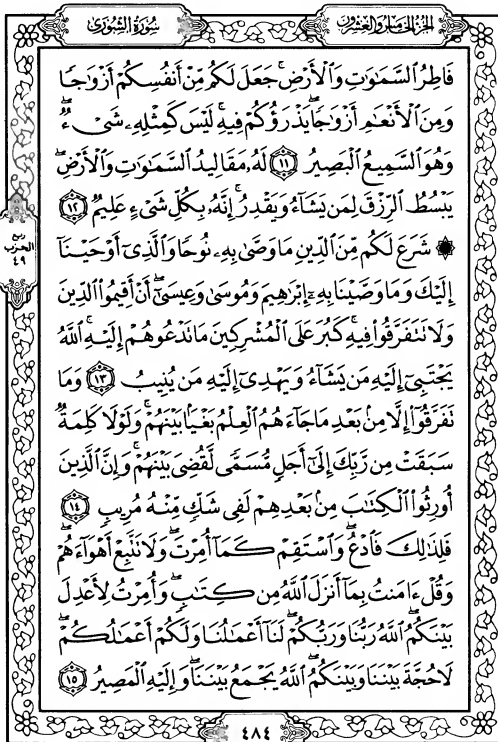 الجزء الخامس والعشرون
سورة الشورى
فَاطِرُ السَّمَٰوَٰتِ وَالْأَرْضِ ۚ جَعَلَ لَكُم مِّنْ أَنفُسِكُمْ أَزْوَٰجًا
وَمِنَ الْأَنْعَٰمِ أَزْوَٰجًا ۖ يَذْرَؤُكُمْ فِيهِ ۚ لَيْسَ كَمِثْلِهِۦ شَىْءٌ ۖ
وَهُوَ السَّمِيعُ الْبَصِيرُ ۝١١ لَهُۥ مَقَالِيدُ السَّمَٰوَٰتِ وَالْأَرْضِ ۖ
يَبْسُطُ الرِّزْقَ لِمَن يَشَآءُ وَيَقْدِرُ ۚ إِنَّهُۥ بِكُلِّ شَىْءٍ عَلِيمٌ ۝١٢
۞ شَرَعَ لَكُم مِّنَ الدِّينِ مَا وَصَّىٰ بِهِۦ نُوحًا وَالَّذِىٓ أَوْحَيْنَآ
إِلَيْكَ وَمَا وَصَّيْنَا بِهِۦٓ إِبْرَٰهِيمَ وَمُوسَىٰ وَعِيسَىٰٓ ۖ أَنْ أَقِيمُوا۟ الدِّينَ
وَلَا تَتَفَرَّقُوا۟ فِيهِ ۚ كَبُرَ عَلَى الْمُشْرِكِينَ مَا تَدْعُوهُمْ إِلَيْهِ ۚ اللَّهُ
يَجْتَبِىٓ إِلَيْهِ مَن يَشَآءُ وَيَهْدِىٓ إِلَيْهِ مَن يُنِيبُ ۝١٣ وَمَا
تَفَرَّقُوٓا۟ إِلَّا مِنۢ بَعْدِ مَا جَآءَهُمُ الْعِلْمُ بَغْيًۢا بَيْنَهُمْ ۚ وَلَوْلَا كَلِمَةٌ
سَبَقَتْ مِن رَّبِّكَ إِلَىٰٓ أَجَلٍ مُّسَمًّى لَّقُضِىَ بَيْنَهُمْ ۚ وَإِنَّ الَّذِينَ
أُورِثُوا۟ الْكِتَٰبَ مِنۢ بَعْدِهِمْ لَفِى شَكٍّ مِّنْهُ مُرِيبٍ ۝١٤
فَلِذَٰلِكَ فَادْعُ ۖ وَاسْتَقِمْ كَمَآ أُمِرْتَ ۖ وَلَا تَتَّبِعْ أَهْوَآءَهُمْ ۖ
وَقُلْ ءَامَنتُ بِمَآ أَنزَلَ اللَّهُ مِن كِتَٰبٍ ۖ وَأُمِرْتُ لِأَعْدِلَ
بَيْنَكُمُ ۖ اللَّهُ رَبُّنَا وَرَبُّكُمْ ۖ لَنَآ أَعْمَٰلُنَا وَلَكُمْ أَعْمَٰلُكُمْ ۖ
لَا حُجَّةَ بَيْنَنَا وَبَيْنَكُمُ ۖ اللَّهُ يَجْمَعُ بَيْنَنَا ۖ وَإِلَيْهِ الْمَصِيرُ ۝١٥
ربع
الحزب
٤٩
٤٨٤